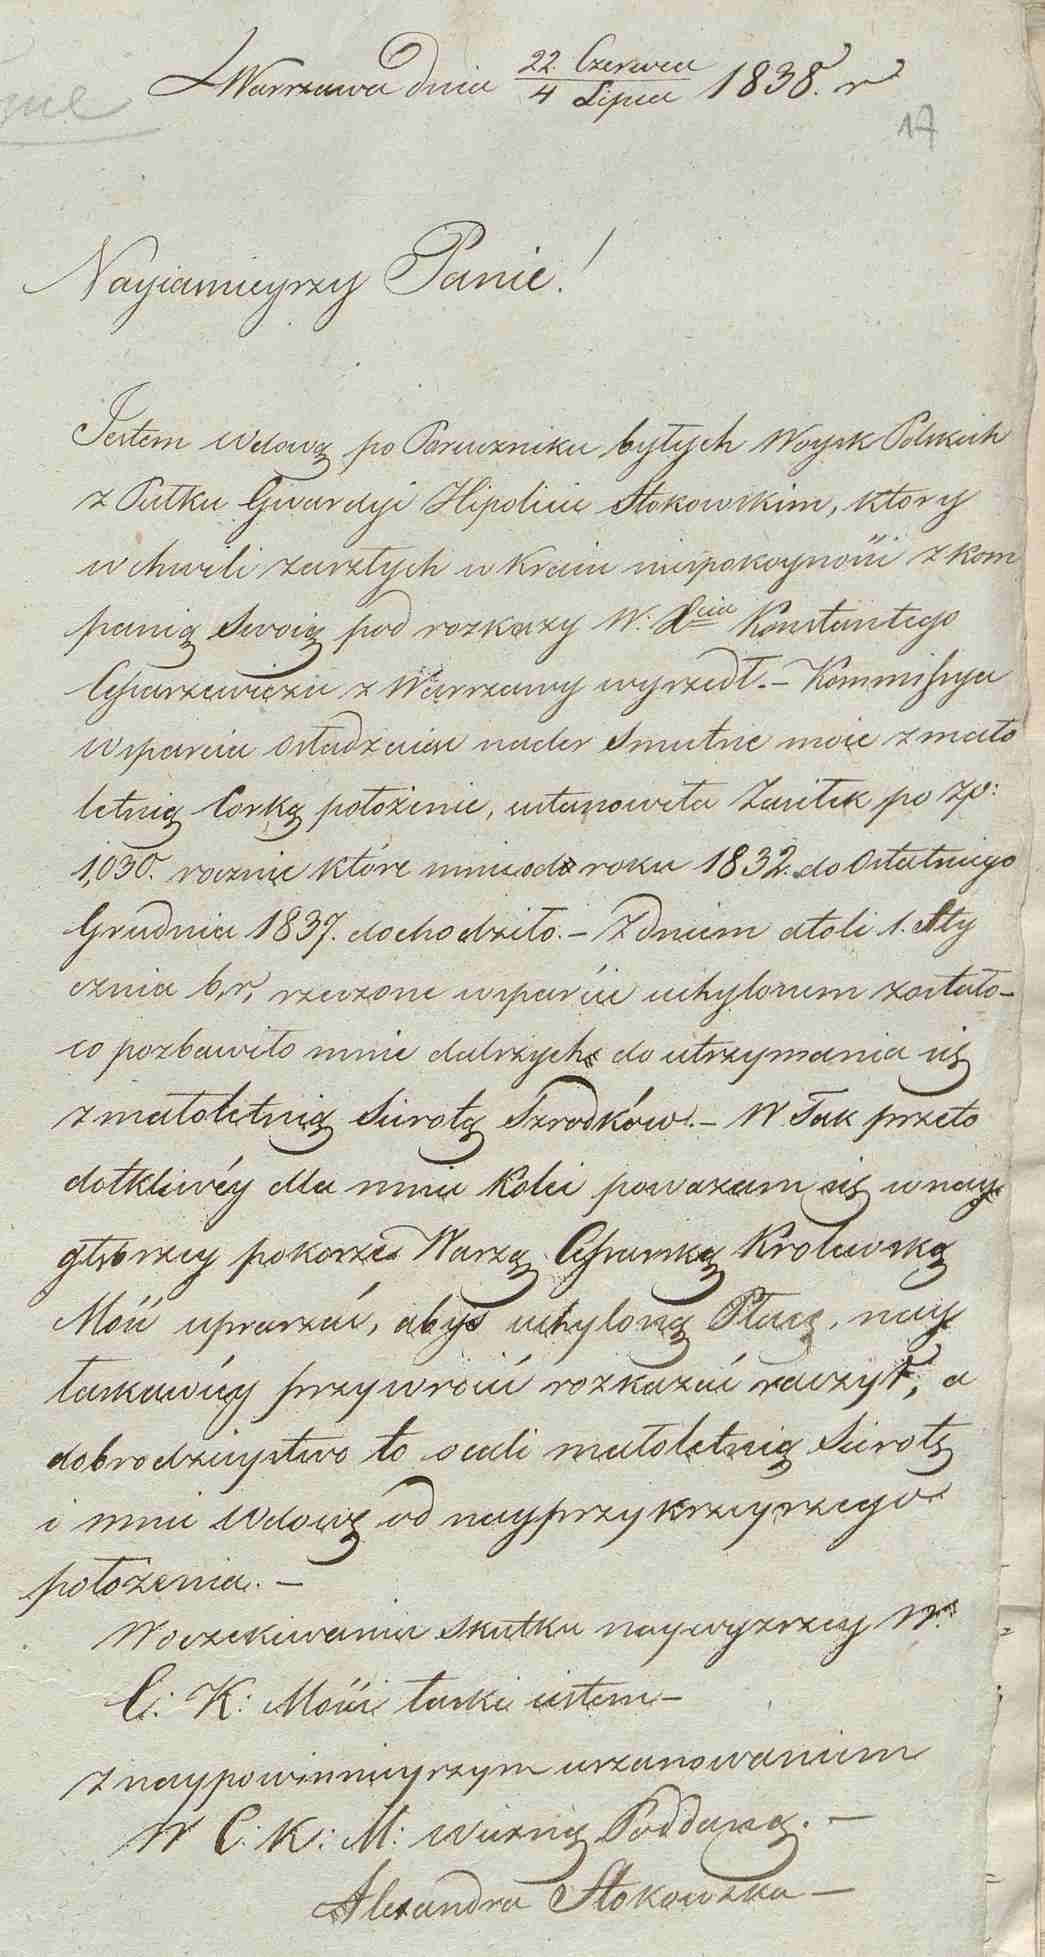 z Warszawa dnia 22 Czerwca / 4 Lipca 1838. r
17
Nayiasnieyszy Panie!
Jestem wdową po Poruczniku byłych Woysk Polskich
z Pułku Gwardyi Hipolicie Stokowskim, ktory
w chwili zaszłych w kraiu niespokoyności z kom
panią swoią pod rozkazy W: Xcia Konstantego
Cesarzewicza z Warszawy wyszedł. – Kommissya
wsparcia osładzaiąc nader smutne moie z mało
letnią Corką położenie, ustanowiła Zasiłek po zp:
1,030. rocznie które mnie od roku 1832. do ostatniego
Grudnia 1837. dochodziło. – Z dniem atoli 1. Sty
cznia b, r, rzeczone wsparcie uchylonem zostało –
co pozbawiło mnie dalszych do utrzymania się
z małoletnią Sierotą Szrodków. – W Tak przeto
dotkliwéy dla mnie kolei poważam się w nay
głębszey pokorze Waszą Cesarską Krolewską
Mość upraszać, abyś uchyloną Płacę, nay
łaskawiéy przywrócić rozkazać raczył, a
dobrodzieystwo to ocali małoletnią Sierotę
i mnie wdowę od nayprzykrzeyszego
położenia. –
W oczekiwaniu skutku naywyższey W:
C: K: Mości łaski iestem –
z naypowinnieyszym uszanowaniem
W C: K: M: wierną Poddaną. –
Alexandra Stokowska –